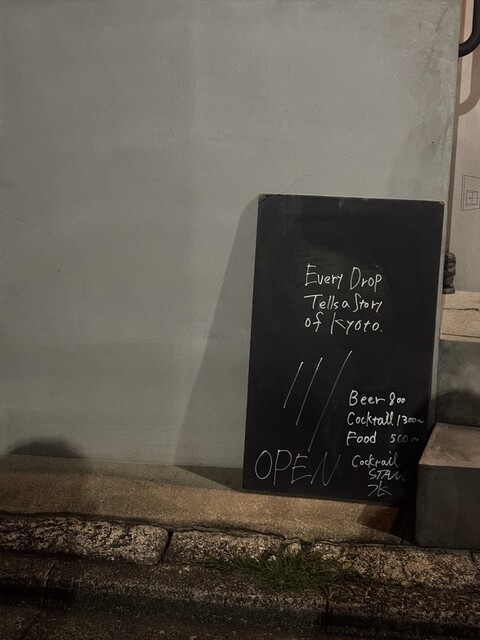 Every Drop
Tells a Story
of Kyoto.
Beer 800
Cocktail 1300~
Food 500~
OPEN
Cocktail
STAND
水